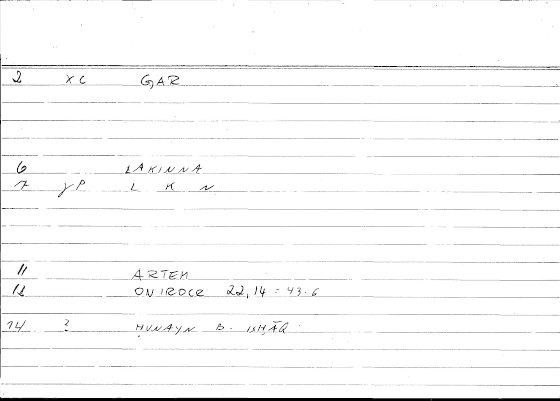 2 XC GAR
6 LAKINNA
7 yP L K N
11 ARTEM
12 ONIROCR 22,14 = 43.6
14 ? ḤUNAYN B. ISḤĀQ